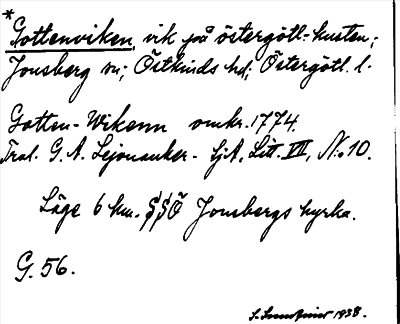 *
Gottenviken, vik på östergötl-kusten;
Jonsberg sn; Östkinds hd; Östergötl. l.
Gotten-Wikenn omkr. 1774.
Tral. G. A. Lejonanker - SjA, Litt. VII, No 10.
Läge 6 km. SSÖ Jonsbergs kyrka.
G. 56.
S. 1938.